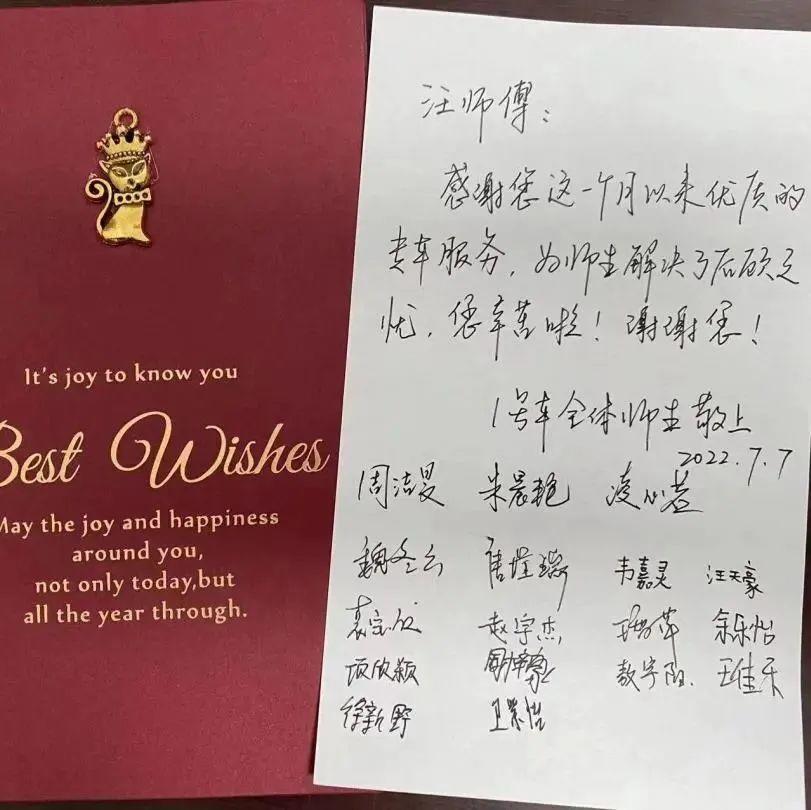 It's joy to know you
Best Wishes
May the joy and happiness
around you,
not only today,but
all the year through.
汪师傅：
感谢您这一个月以来优质的
专车服务，为师生解决了后顾之
忧，您辛苦啦！谢谢您！
1号车全体师生敬上
2022.7.7
周洁旻 朱晨艳
魏冬云 韦嘉灵 汪天豪
赵宇杰 余乐怡
项欣颖 王佳乐
徐新野